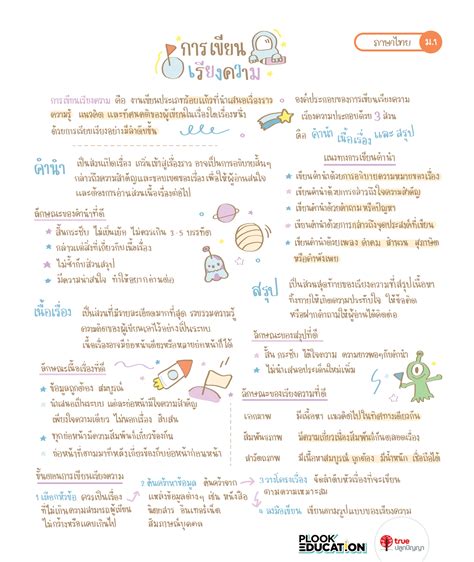 การเขียน
เรียงความ
ภาษาไทย ม.1
การเขียนเรียงความ คือ งานเขียนประเภทร้อยแก้วที่นำเสนอเรื่องราว
ความรู้ แนวคิด และทัศนคติของผู้เขียนในเรื่องใดเรื่องหนึ่ง
ด้วยการเรียบเรียงอย่างมีลำดับขั้น
องค์ประกอบของการเขียนเรียงความ
เรียงความประกอบด้วย 3 ส่วน
คือ คำนำ เนื้อเรื่อง และ สรุป
คำนำ
เป็นส่วนเปิดเรื่อง เกริ่นเข้าสู่เรื่องราว อาจเป็นการอธิบายสั้นๆ
กล่าวถึงความสำคัญและขอบเขตของเรื่องเพื่อให้ผู้อ่านสนใจ
และต้องการอ่านส่วนเนื้อเรื่องต่อไป
ลักษณะของคำนำที่ดี
สั้นกระชับ ไม่เยิ่นเย้อ ไม่ควรเกิน 3-5 บรรทัด
กล่าวแต่สิ่งที่เกี่ยวกับเนื้อเรื่อง
ไม่ซ้ำกับส่วนสรุป
มีความน่าสนใจ ทำให้อยากอ่านต่อ
แนวทางการเขียนคำนำ
เขียนคำนำด้วยการอธิบายความหมายของเรื่อง
เขียนคำนำด้วยการกล่าวถึงใจความสำคัญ
เขียนคำนำด้วยคำถามหรือปัญหา
เขียนคำนำด้วยการกล่าวถึงจุดประสงค์ที่เขียน
เขียนคำนำด้วยเพลง คำคม สำนวน สุภาษิต
หรือคำพังเพย
เนื้อเรื่อง
เป็นส่วนที่มีรายละเอียดมากที่สุด รวบรวมความรู้
ความคิดของผู้เขียนเอาไว้อย่างเป็นระบบ
เนื้อเรื่องอาจมีย่อหน้าเดียวหรือหลายย่อหน้าก็ได้
ลักษณะเนื้อเรื่องที่ดี
ข้อมูลถูกต้อง สมบูรณ์
นำเสนอเป็นระเบียบ แต่ละย่อหน้ามีใจความสำคัญ
เพียงใจความเดียว ไม่วกเรื่อง สับสน
ทุกย่อหน้ามีความสัมพันธ์เกี่ยวข้องกัน
ย่อหน้าที่ตามมามีใจความเกี่ยวข้องกับย่อหน้าก่อนหน้า
สรุป
เป็นส่วนสุดท้ายของเรียงความที่สรุปเนื้อหา
ทิ้งท้ายให้เกิดความประทับใจ ให้ข้อคิด
หรือฝากคำถามให้ผู้อ่านได้คิดต่อ
ลักษณะของสรุปที่ดี
สั้น กระชับ ได้ใจความ ความยาวพอๆกับคำนำ
ไม่นำเสนอประเด็นใหม่เพิ่ม
ลักษณะของเรียงความที่ดี
เอกภาพ มีเนื้อหา แนวคิดไปในทิศทางเดียวกัน
สัมพันธภาพ มีความเกี่ยวเนื่องสัมพันธ์กันโดยตลอดเรื่อง
สารัตถภาพ มีเนื้อหาสมบูรณ์ ถูกต้อง มีน้ำหนัก เชื่อถือได้
ขั้นตอนการเขียนเรียงความ
1 เลือกหัวข้อ ควรเป็นเรื่อง
ที่ไม่เกินความสามารถผู้เขียน
ไม่กว้างหรือแคบเกินไป
2 ค้นคว้าหาข้อมูล ค้นคว้าจาก
แหล่งข้อมูลต่างๆ เช่น หนังสือ
นิตยสาร อินเทอร์เน็ต
สัมภาษณ์บุคคล
3 วางโครงเรื่อง จัดลำดับหัวเรื่องที่จะเขียน
ตามความเหมาะสม
4 ลงมือเขียน ตามรูปแบบของเรียงความ
PLOOK EDUCATION
true
ปลูกปัญญา